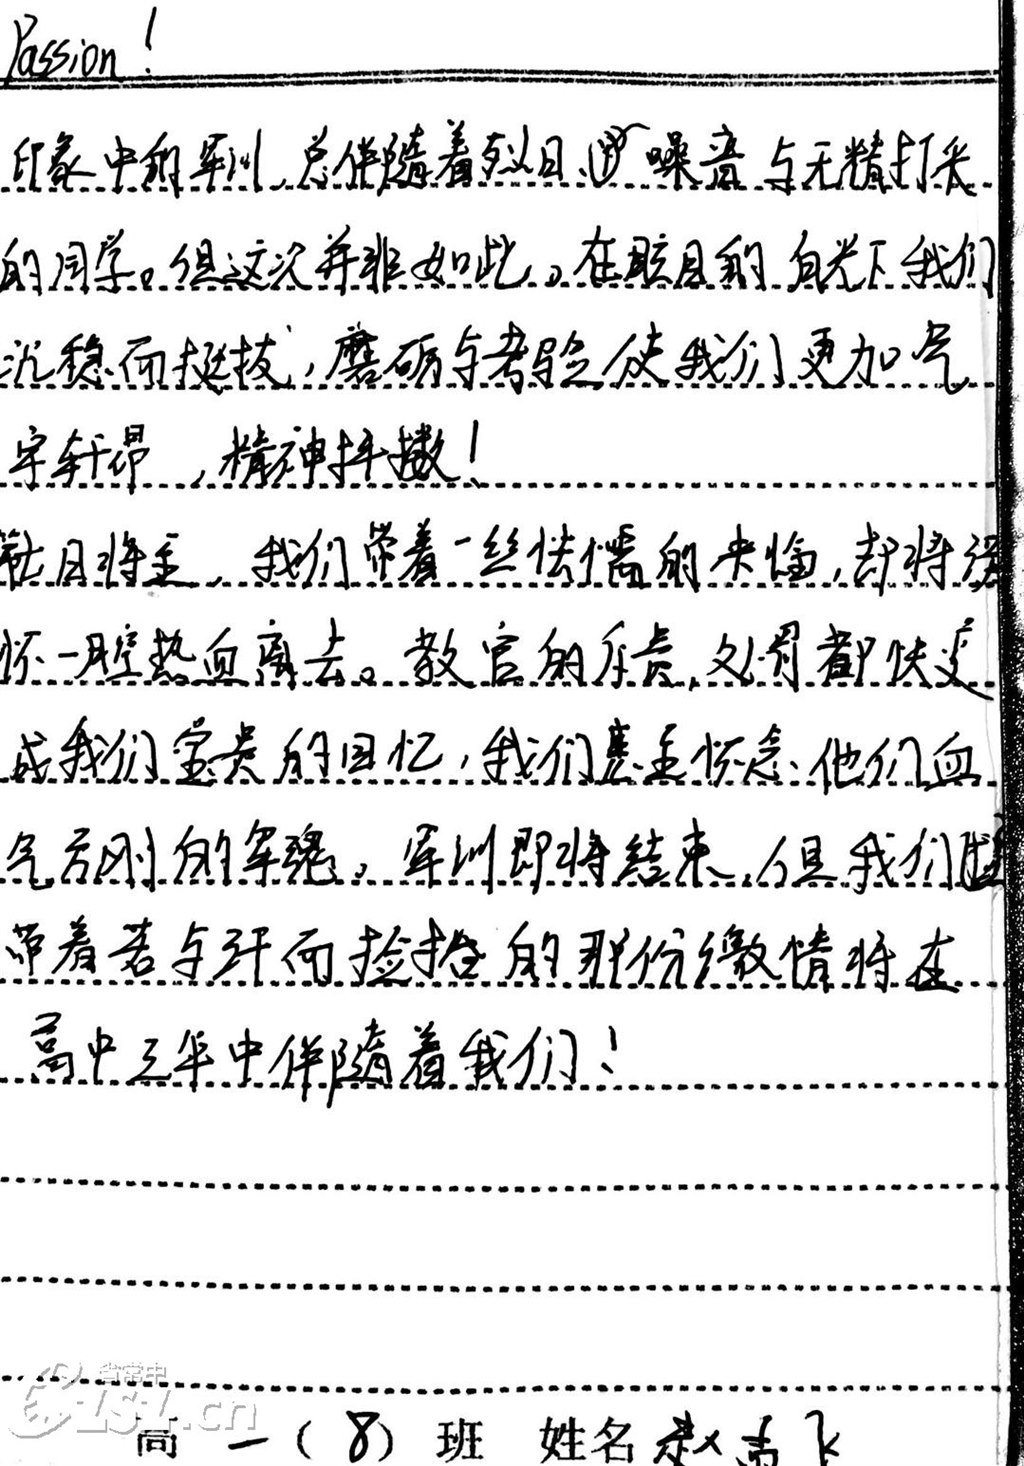 Passion!
印象中的军训,总伴随着烈日、噪音与无精打采
的同学。但这次并非如此。在眩目的白光下我们
沉稳而挺拔,磨砺与考验使我们更加气
宇轩昂,精神抖擞!
日将至,我们带着一丝怯懦的来临,却将深
怀一腔热血离去。教官的斥责,处罚都快变
成我们宝贵的回忆,我们甚至怀念他们血
气方刚的军魂。军训即将结束,但我们
带着苦与汗而捡拾的那份激情将在
高中三年中伴随着我们!
省常中
CZSZ.cn
高一(8)班 姓名赵 飞